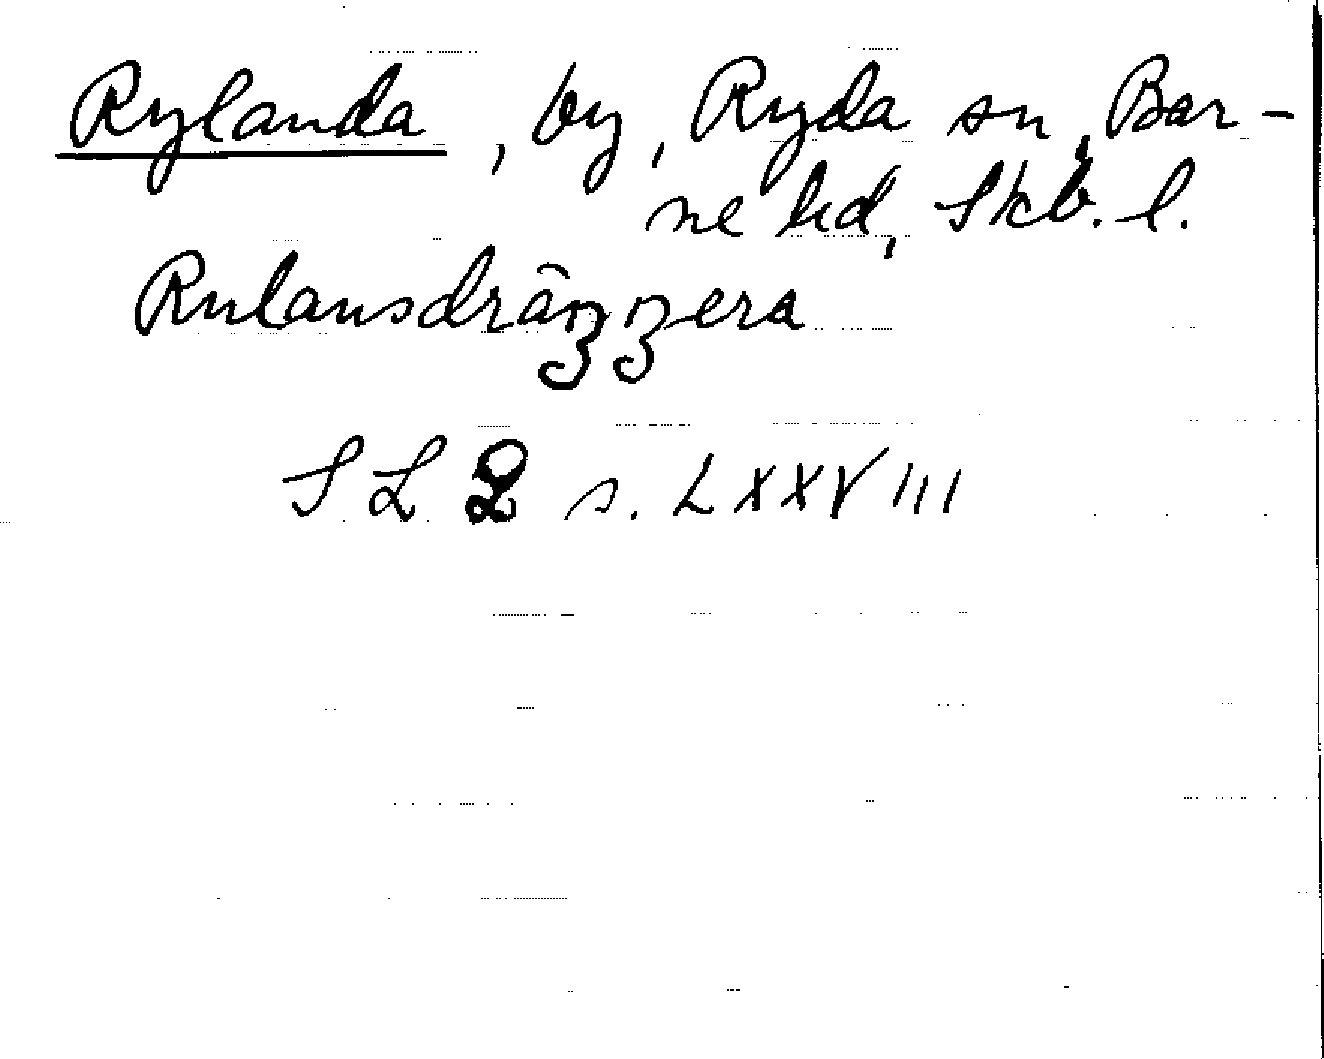 Rylanda, by, Ryda sn, Bar-
ne hd, Skb. l.
Rulansdräʒʒera
SL 2 s. LXXVIII